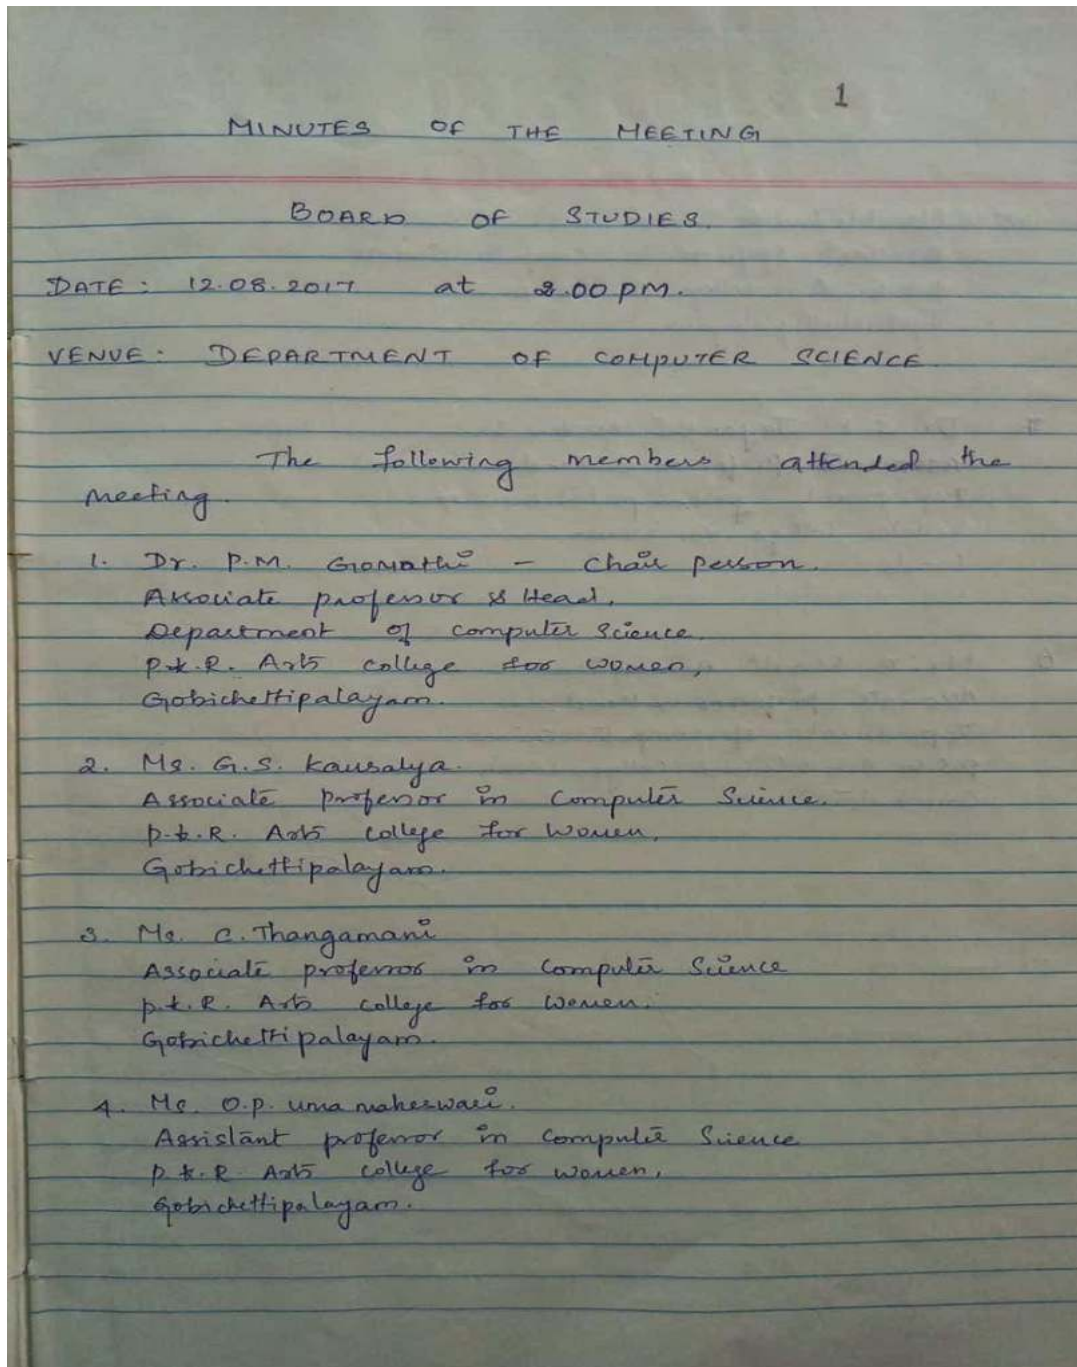 1
MINUTES OF THE MEETING
BOARD OF STUDIES.
DATE: 12.08.2017 at 2.00 PM.
VENUE: DEPARTMENT OF COMPUTER SCIENCE
The following members attended the
Meeting.
1. Dr. P.M. Gomathi - Chair person.
Associate professor & Head,
Department of computer Science.
P.K.R. Arts college for women,
Gobichettipalayam.
2. Ms. G.S. Kausalya.
Associate professor in Computer Science.
P.K.R. Arts college for Women,
Gobichettipalayam.
3. Ms. C. Thangamani
Associate professor in Computer Science
P.K.R. Arts college for Women.
Gobichettipalayam.
4. Ms. O.P. Uma maheswari.
Assistant professor in Computer Science
P.K.R Arts college for women,
Gobichettipalayam.